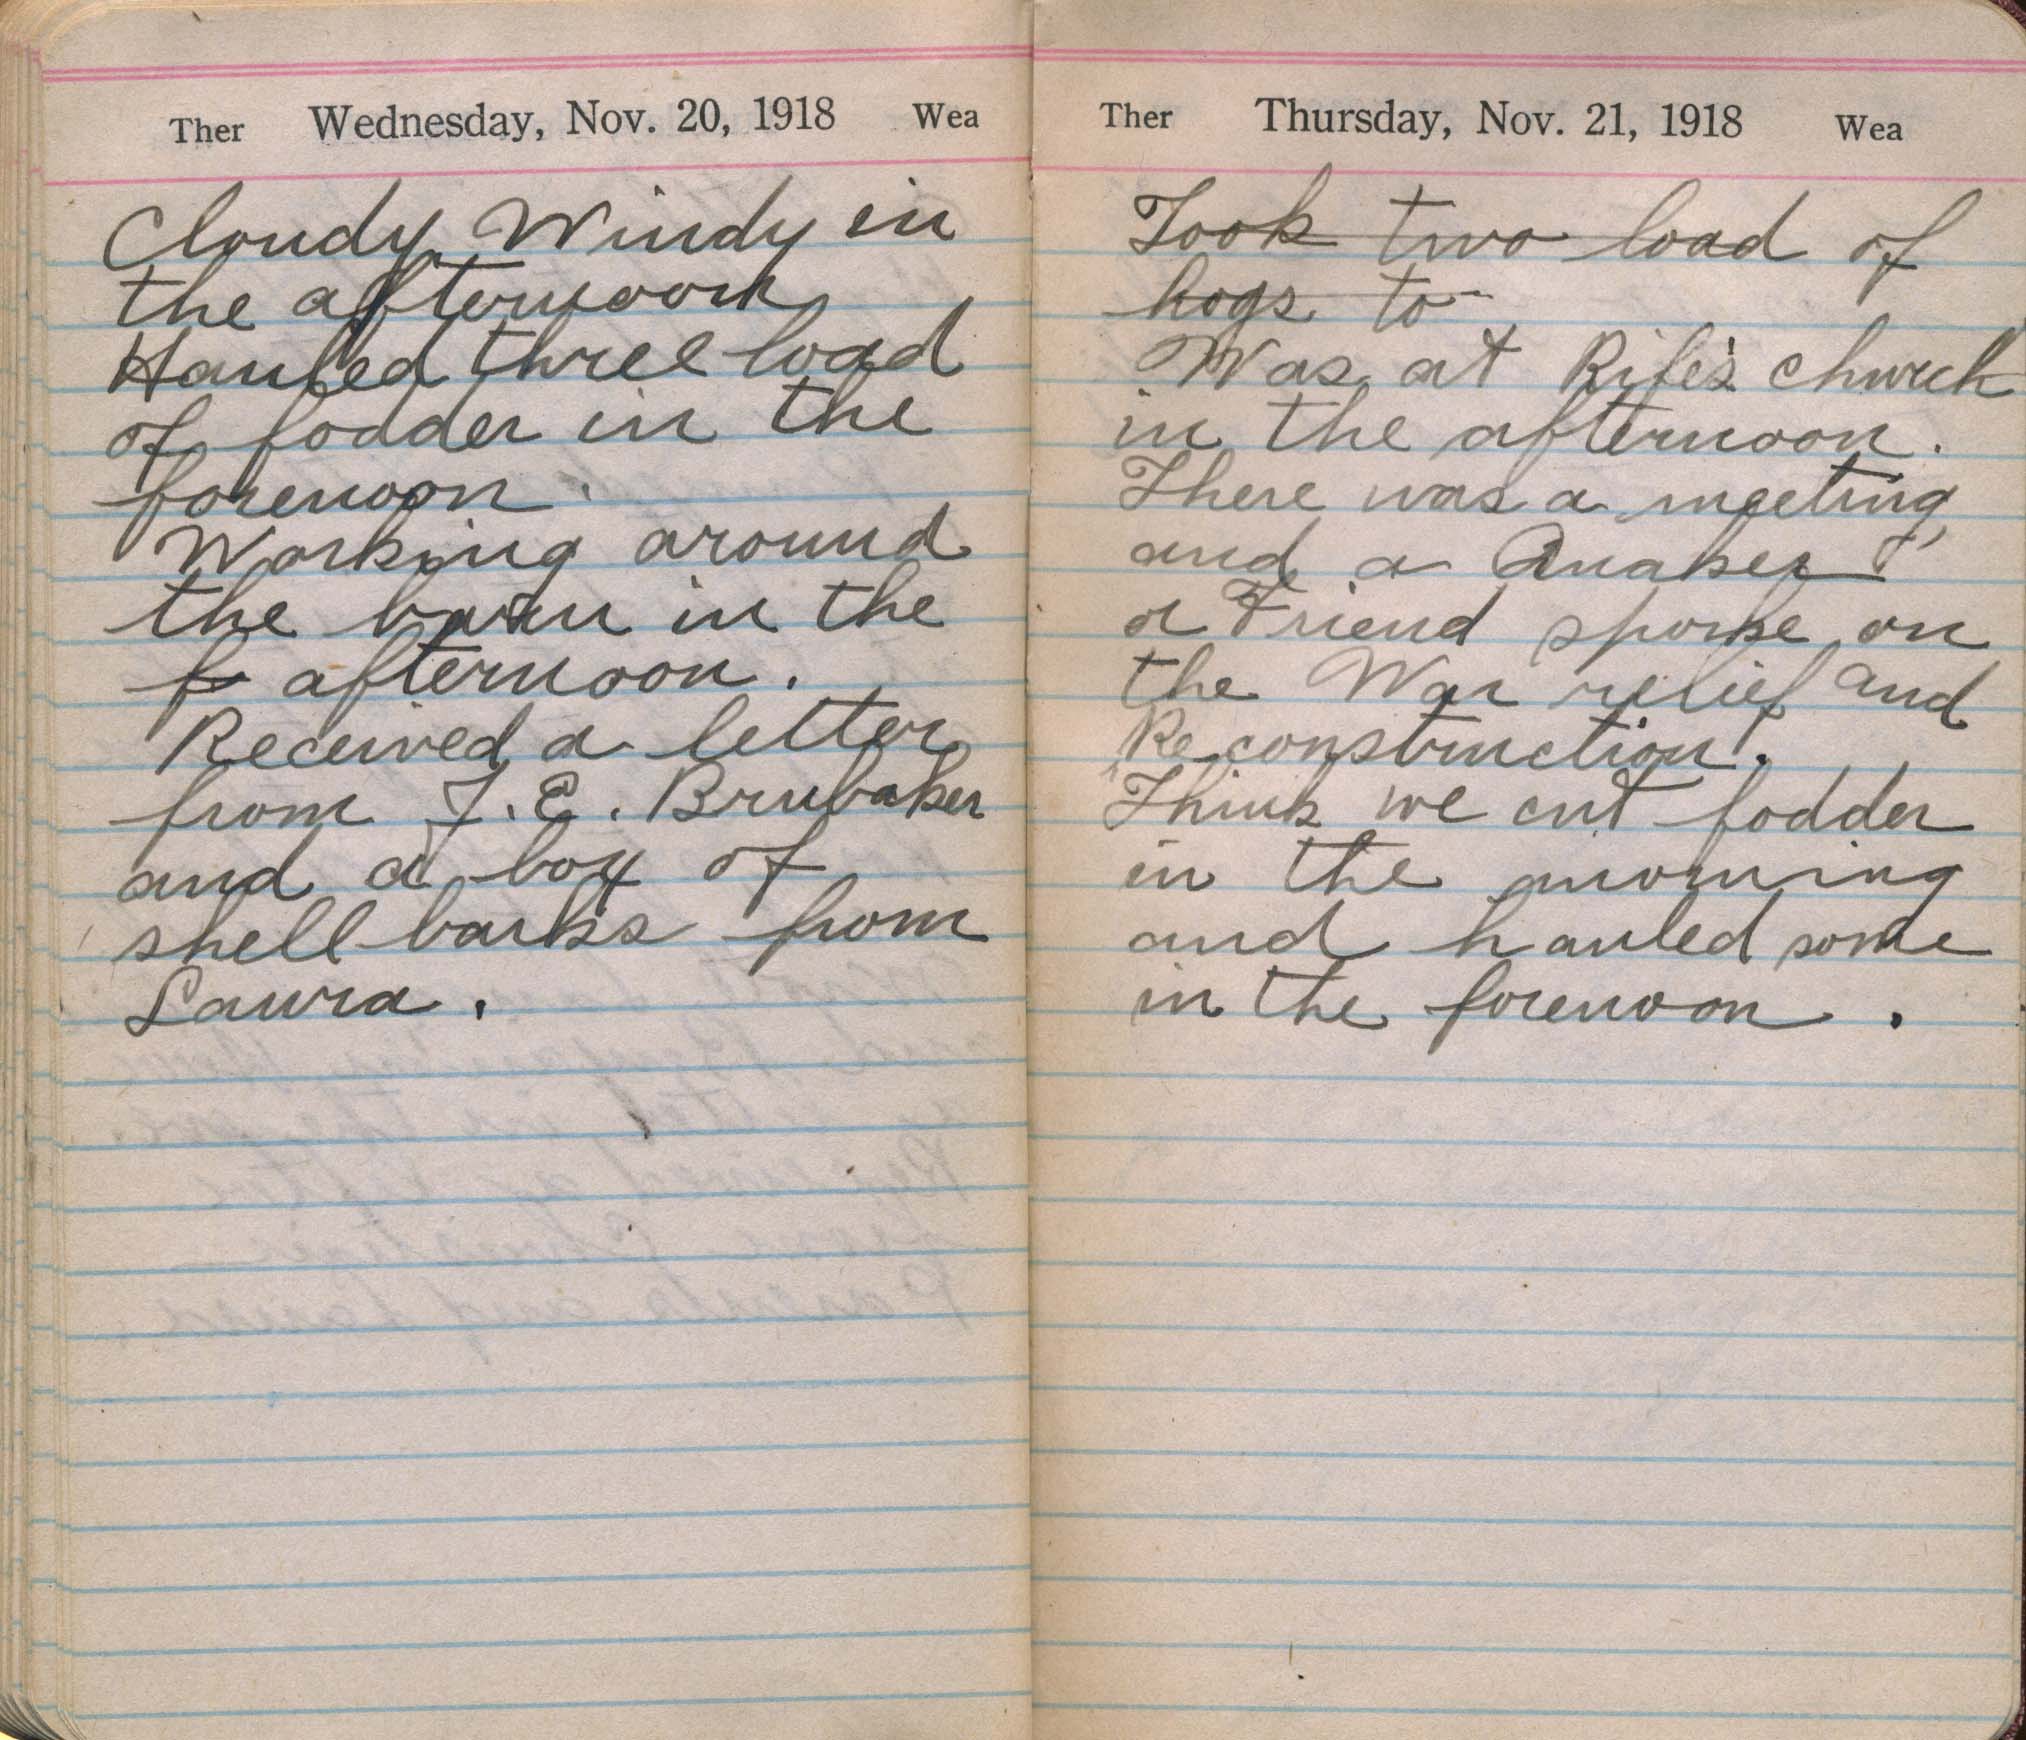 Ther Wednesday, Nov. 20, 1918 Wea
Cloudy Windy in
the afternoon
Hauled three load
of fodder in the
forenoon.
Working around
the barn in the
f afternoon.
Received a letter
from J. E. Brubaker
and a box of
shellbarks from
Laura.
Ther Thursday, Nov. 21, 1918 Wea
Took two load of
hogs to
Was at Rife's church
in the afternoon.
There was a meeting
and a Quaker
or Friend spoke on
the War relief and
Reconstruction.
Think we cut fodder
in the morning
and hauled some
in the forenoon.